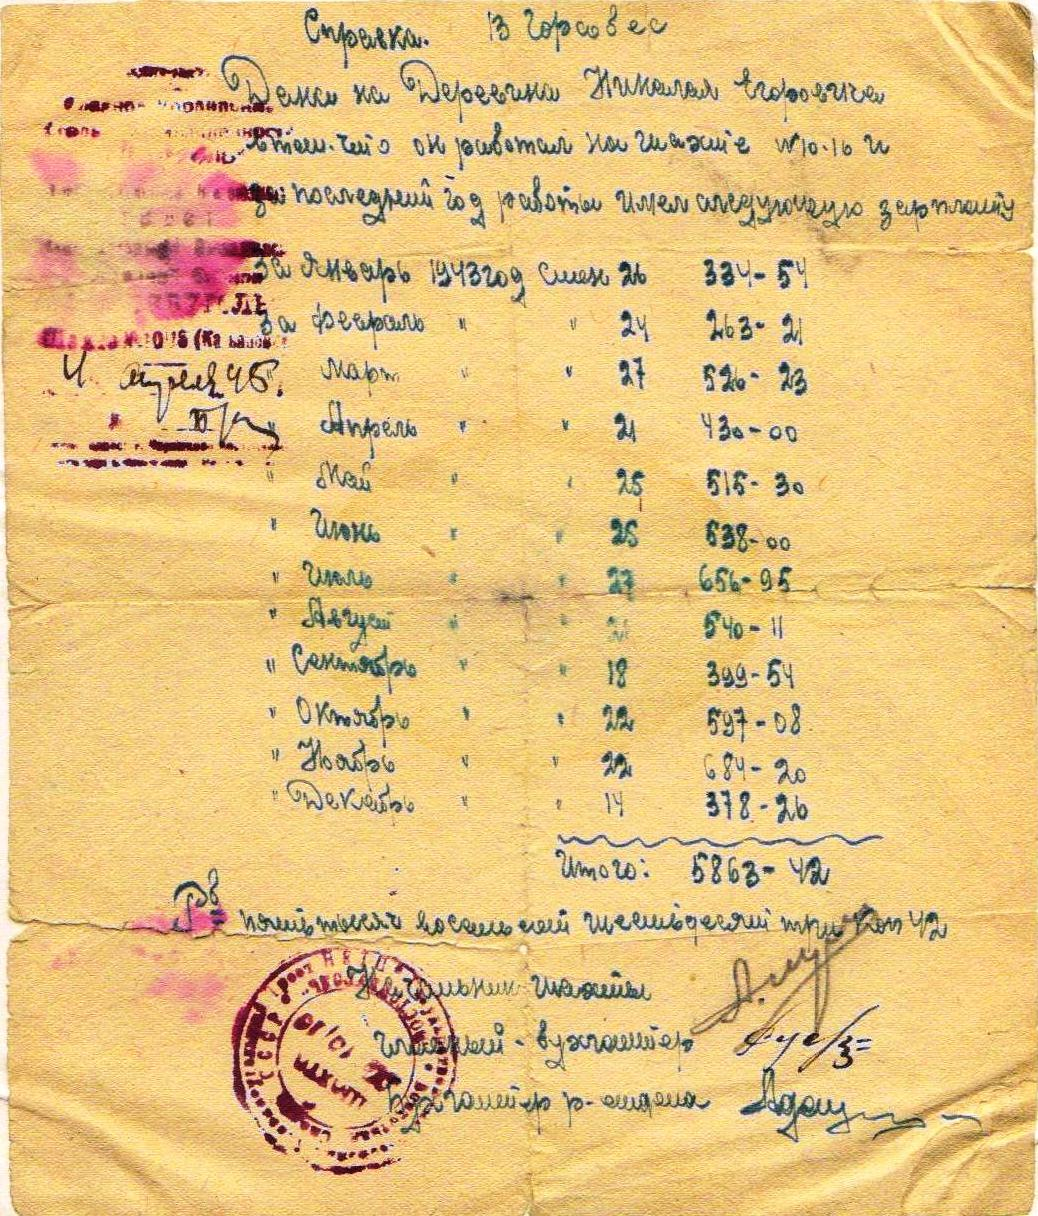 Справка. В Горсовес
Дана на Деревина Николая Егоровича
втом.что он работал на шахте №10-16 и
за последний год работы имел следующую зарплату
за Январь 1943год смен 26 334-54
за февраль " " 24 263-21
" Март " 27 526-23
" Апрель " " 21 430-00
" Май " " 25 515-30
" Июнь " " 25 538-00
" Июль " " 27 656-95
" Август " " 21 540-11
" Сентябрь " " 18 399-54
" Октябрь " " 22 597-08
" Ноябрь " " 22 684-20
" Декабрь " " 14 378-26
Итого: 5863-42
пять тысяч восемьсот шестьдесят три коп 42
Начальник шахты
Главный-бухгалтер
Бухгалтер р-стола
УГОЛЬ
Шахта № 10/16
4 апреля 45.
СССР
ШАХТА
10/16